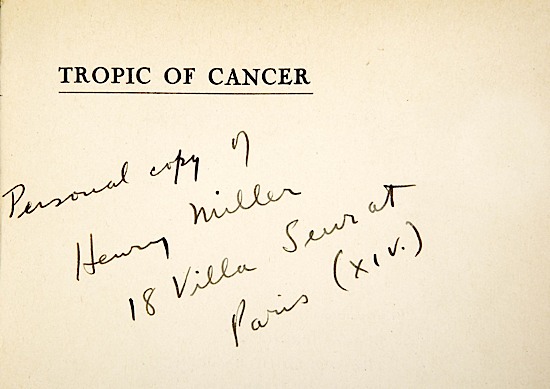 TROPIC OF CANCER
Personal copy of
Henry Miller
18 Villa Seurat
Paris (XIV.)